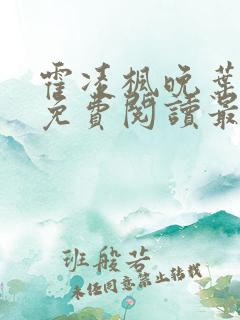 霍凌楓晚葉
免費閱讀最
班般若
未任同意禁止结截